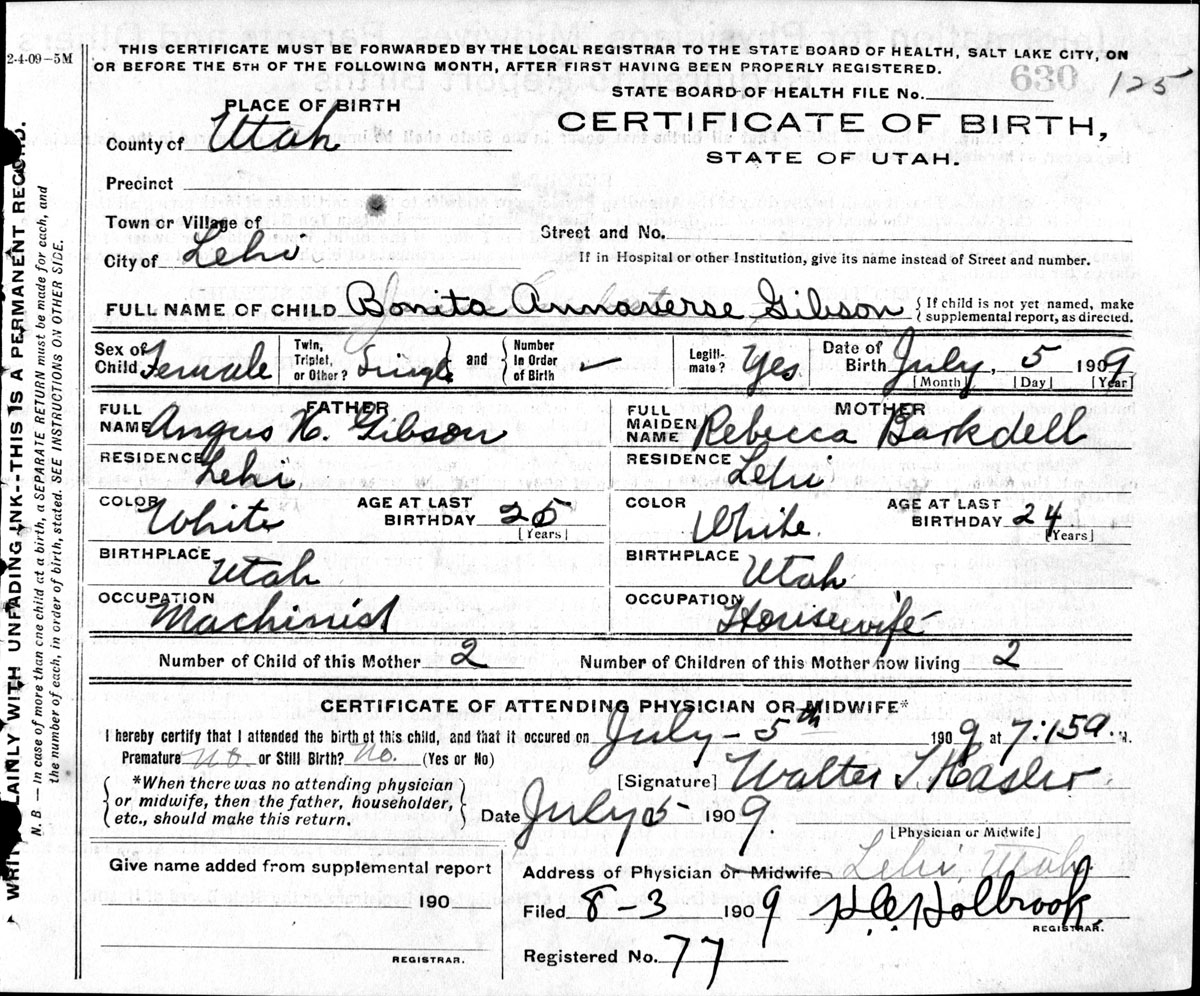 2-4-09-5M
THIS CERTIFICATE MUST BE FORWARDED BY THE LOCAL REGISTRAR TO THE STATE BOARD OF HEALTH, SALT LAKE CITY, ON
OR BEFORE THE 5TH OF THE FOLLOWING MONTH, AFTER FIRST HAVING BEEN PROPERLY REGISTERED.
630 125
STATE BOARD OF HEALTH FILE No.
PLACE OF BIRTH
CERTIFICATE OF BIRTH,
STATE OF UTAH.
County of Utah
Precinct
Town or Village of
Street and No.
City of Lehi
If in Hospital or other Institution, give its name instead of Street and number.
FULL NAME OF CHILD Bonita Gibson
{If child is not yet named, make
supplemental report, as directed.
Sex of Child Female
Twin, Triplet, or Other? Single and Number in Order of Birth -
Legiti-mate? Yes
Date of Birth July, 5 1909
[Month] [Day] [Year]
FATHER
FULL NAME Angus H. Gibson
RESIDENCE Lehi
COLOR White
AGE AT LAST BIRTHDAY 25
[Years]
BIRTHPLACE Utah
OCCUPATION Machinist
MOTHER
FULL MAIDEN NAME Rebecca Barkdell
RESIDENCE Lehi
COLOR White
AGE AT LAST BIRTHDAY 24
[Years]
BIRTHPLACE Utah
OCCUPATION Housewife
Number of Child of this Mother 2 Number of Children of this Mother now living 2
CERTIFICATE OF ATTENDING PHYSICIAN OR MIDWIFE*
I hereby certify that I attended the birth of this child, and that it occured on July - 5th 1909 at 7:15 a. M.
Premature No. or Still Birth? No. (Yes or No)
*When there was no attending physician
or midwife, then the father, householder,
etc., should make this return.
[Signature] Walter T. Hasler
Date July 5 1909.
[Physician or Midwife]
Give name added from supplemental report
190
REGISTRAR.
Address of Physician or Midwife Lehi, Utah.
Filed 8-3 1909 H.C. Holbrook.
REGISTRAR.
Registered No. 77
WRITE PLAINLY WITH UNFADING INK---THIS IS A PERMANENT RECORD.
N. B — in case of more than one child at a birth, a SEPARATE RETURN must be made for each, and
the number of each, in order of birth, stated. SEE INSTRUCTIONS ON OTHER SIDE.